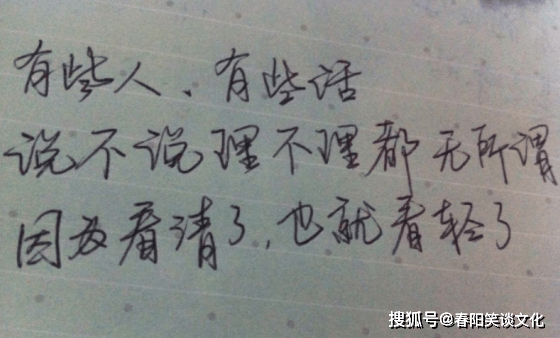 有些人、有些话
说不说理不理都无所谓
因为看清了,也就看轻了
搜狐号@春阳笑谈文化